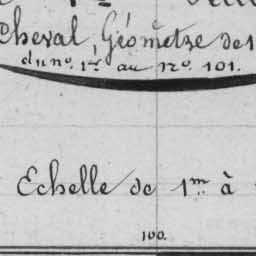 Cheval, Géomètre de 1
du no. 1er au no. 101.
Echelle de 1m à
100.